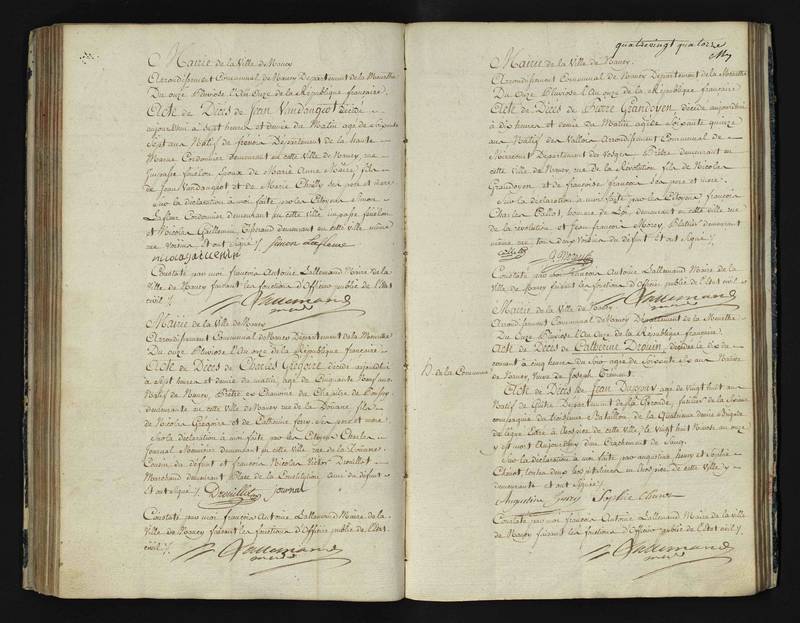 Mairie de la Ville de Nancy
Arrondissement Communal de Nancy Département de la Meurthe
Du onze Pluviose l'An Onze de la République française
Acte de Décès de Jean Vandangiot décédé
aujourdhui à sept heures et demie du Matin agé de Soixante
Sept ans Natif de Département de la haute
Marne Cordonnier demeurant en cette Ville de Nancy, rue
fénélon, Epoux de Marie Anne Maire, fils
de Jean Vandangiot et de Marie ses pere et mere
Sur la déclaration à moi faite par les Citoyens Simon
Lafleur Cordonnier demeurant en cette ville, fénélon
et Nicolas Guillemin, demeurant en cette Ville, même
rue Voisins Et ont Signé /. Simon Lafleur
nicolas
Constaté par moi françois Antoine Lallemand Maire de la
Ville de Nancy faisant les fonctions d'Officier public de l'état
civil /. Lallemand
maire
Mairie de la Ville de Nancy
Arrondissement Communal de Nancy Département de la Meurthe
Du Onze Pluviose l'An onze de la République française
Acte de Décès de Charles Grégoire décédé aujourdhui
à sept heures et demie du matin, agé de Cinquante Neuf ans
Natif de Nancy, Prêtre Ex Chanoine du Chapitre de
demeurante en cette Ville de Nancy rue de la Douane fils
de Nicolas Grégoire et de Catherine ses pere et mere
Sur la déclaration à moi faite par les Citoyens Charles
Journal Menuisier demeurant en cette Ville rue de la Douane
Cousin du défunt et françois Nicolas Victor Drouillet
Marchand demeurant Place de la Constitution ami du défunt
Et ont Signé /. Drouillet journal
Constaté par moi françois Antoine Lallemand Maire de la
Ville de Nancy faisant les fonctions d'Officier public de l'état
civil /. Lallemand
maire
quatrevingt quatorze
Mairie de la Ville de Nancy
Arrondissement Communal de Nancy Département de la Meurthe
Du onze Pluviose l'An onze de la République française
Acte de Décès de Pierre Grandoyen, décédé aujourdhui
à dix heures et demie du Matin agé de Soixante quinze
ans Natif de Vallois Arrondissement Communal de
Mirecourt Département des Vosges Prêtre demeurant en
cette Ville de Nancy, rue de la Révolution fils de Nicolas
Grandoyen et de françoise françois Ses pere et mere.
Sur la déclaration à moi faite par les Citoyens françois
Charles Callot, homme de Loi, demeurant en cette ville rue
de la révolution et Jean françois Morey, Platrier demeurant
même rue tous deux Voisins du défunt et ont Signé /.
Callot
Constaté par moi françois Antoine Lallemand Maire de la
Ville de Nancy faisant les fonctions d'Officier public de l'état civil /.
Lallemand
maire
Mairie de la Ville de Nancy
Arrondissement Communal de Nancy Département de la Meurthe
Du Onze Pluviose l'An Onze de la République française
Acte de Décès de Catherine Drouin, décédée le dix du
courant à cinq heures du Soir agée de Soixante Six ans Native
de Nancy, Veuve de Joseph
Acte de Décès de Jean agé de vingt huit ans
Natif de Département de la Gironde, fusilier de la
compagnie du troisieme Bataillon de la Quatrieme demie Brigade
de Ligne Entré à l'hospice de cette Ville, le Vingt huit Nivose an onze
y est mort Aujourdhuy d'un Crachement de Sang.
Sur la déclaration à moi faite par augustine henry et Sophie
toutes deux hospitalières en l'hospice de cette Ville y
demeurante et ont Signé /.
Augustine henry Sophie
Constaté par moi françois Antoine Lallemand Maire de la Ville
de Nancy faisant les fonctions d'Officier public de l'état civil /.
Lallemand
maire